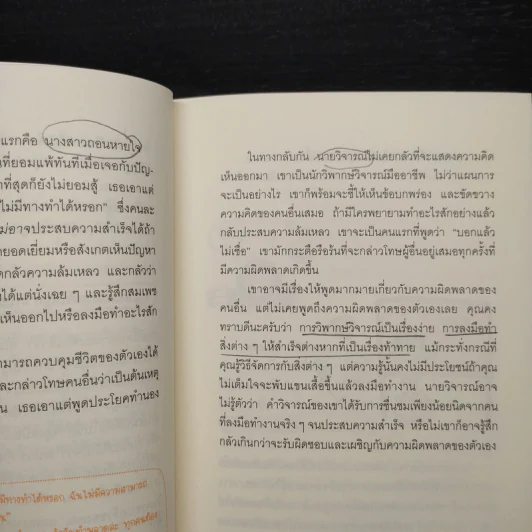 แรกคือ นางสาวถอนหายใจ
นที่ยอมแพ้ทันทีเมื่อเจอกับปัญ-
าที่สุดก็ยังไม่ยอมสู้ เธอเอาแต่
ไม่มีทางทำได้หรอก" ซึ่งคนละ
ม่อาจประสบความสำเร็จได้ถ้า
ยอดเยี่ยมหรือสังเกตเห็นปัญหา
ดกลัวความล้มเหลว และกลัวว่า
งได้แต่นั่งเฉย ๆ และรู้สึกสมเพช
เห็นออกไปหรือลงมือทำอะไรสัก
ามารถควบคุมชีวิตของตัวเองได้
ละกล่าวโทษคนอื่นว่าเป็นต้นเหตุ
น เธอเอาแต่พูดประโยคทำนอง
มีทางทำได้หรอก ฉันไม่มีความสามารถ
ในทางกลับกัน นายวิจารณ์ไม่เคยกลัวที่จะแสดงความคิด
เห็นออกมา เขาเป็นนักวิพากษ์วิจารณ์มืออาชีพ ไม่ว่าแผนการ
จะเป็นอย่างไร เขาก็พร้อมจะชี้ให้เห็นข้อบกพร่อง และขัดขวาง
ความคิดของคนอื่นเสมอ ถ้ามีใครพยายามทำอะไรสักอย่างแล้ว
กลับประสบความล้มเหลว เขาจะเป็นคนแรกที่พูดว่า "บอกแล้ว
ไม่เชื่อ" เขามักกระตือรือร้นที่จะกล่าวโทษผู้อื่นอยู่เสมอทุกครั้งที่
มีความผิดพลาดเกิดขึ้น
เขาอาจมีเรื่องให้พูดมากมายเกี่ยวกับความผิดพลาดของ
คนอื่น แต่ไม่เคยพูดถึงความผิดพลาดของตัวเองเลย คุณคง
ทราบดีนะครับว่า การวิพากษ์วิจารณ์เป็นเรื่องง่าย การลงมือทำ
สิ่งต่าง ๆ ให้สำเร็จต่างหากที่เป็นเรื่องท้าทาย แม้กระทั่งกรณีที่
คุณรู้วิธีจัดการกับสิ่งต่าง ๆ แต่ความรู้นั้นคงไม่มีประโยชน์ถ้าคุณ
ไม่เต็มใจจะพับแขนเสื้อขึ้นแล้วลงมือทำงาน นายวิจารณ์อาจ
ไม่รู้ตัวว่า คำวิจารณ์ของเขาได้รับการชื่นชมเพียงน้อยนิดจากคน
ที่ลงมือทำงานจริง ๆ จนประสบความสำเร็จ หรือไม่เขาก็อาจรู้สึก
กลัวเกินกว่าจะรับผิดชอบและเผชิญกับความผิดพลาดของตัวเอง